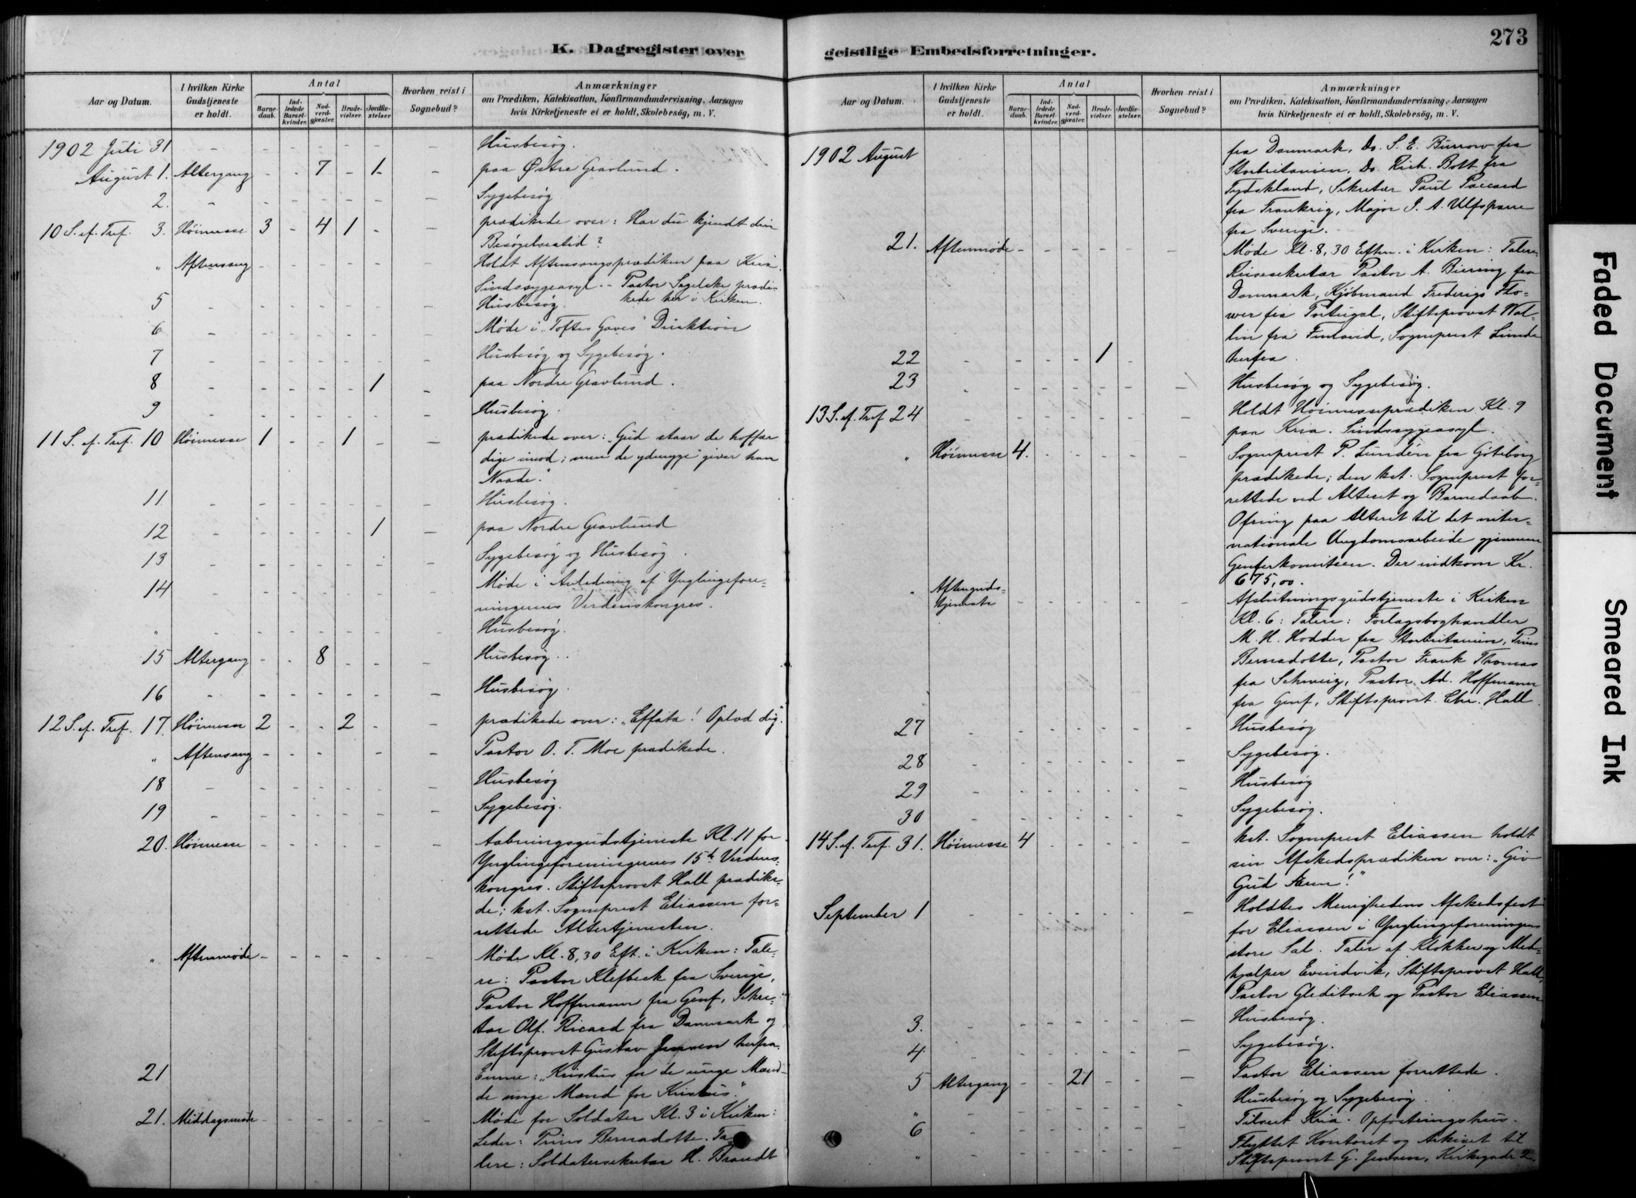 K. Dagregister over
Aar og Datum.
I hvilken Kirke Gudstjeneste er holdt.
Antal
Barnedaab.
Indledede Barselkvinder.
Nadverdgjæster.
Brudevielser.
Jordfæstelser.
Hvorhen reist i Sognebud?
Anmærkninger
om Prædiken, Katekisation, Konfirmandundervisning, Aarsagen
hvis Kirketjeneste ei er holdt, Skolebesøg, m. V.
1902 Juli 31 - - - - - - - Husbesøg.
August 1. Altergang - - 7 - 1 - paa Østre Gravlund.
2. - - - - - - - Sygebesøg
10 S. ef. Tref. 3. Høimesse 3 - 4 1 - - prædikede over: Har du kjendt din
Besøgelsestid?
" Aftensang - - - - - - Holdt Aftensangsprædiken paa Kria.
Sindssygeasyl. - Pastor
5 - - - - - - - Husbesøg. kede her i Kirken.
6 - - - - - - - Møde i "Toftes Gaves" Direktion
7 - - - - - - - Husbesøg og Sygebesøg.
8 - - - - - 1 - paa Nordre Gravlund.
9 - - - - - - - Husbesøg.
11 S. ef. Tref. 10 Høimesse 1 - - 1 - - prædikede over: "Gud staar de hoffær
dige imod; men de ydmyge giver han
Naade."
11 - - - - - - - Husbesøg.
12 - - - - - 1 - paa Nordre Gravlund
13 - - - - - - - Sygebesøg og Husbesøg.
14 - - - - - - - Møde i Anledning af Ynglingefore-
ningernes Verdenskongres.
" - - - - - - - Husbesøg.
15 Altergang - - 8 - - - Husbesøg.
16 - - - - - - - Husbesøg
12 S. ef. Tref. 17. Høimesse 2 - - 2 - - prædikede over: "Effata! Oplad dig".
" Aftensang - - - - - - Pastor O. T. Moe prædikede.
18 - - - - - - - Husbesøg
19 - - - - - - - Sygebesøg.
20. Høimesse - - - - - - Aabningsgudstjeneste Kl. 11 for
Ynglingeforeningernes 15de Verdens-
kongres. Stiftsprovst Hall prædike-
de; kst. Sogneprest Eliassen for-
rettede Altertjenesten.
" Aftenmøde - - - - - - Møde Kl. 8,30 Eft. i Kirken: Tale-
re: Pastor Klefbeck fra Sverige,
Pastor Hoffmann fra Genf, Sekre-
tær Olf. Ricard fra Danmark og
Stiftsprovst Gustav Jensen herfra.
21 Emne: "Kristus for de unge Mænd -
de unge Mænd for Kristus".
21. Middagsmøde Møde for Soldater Kl. 3 i Kirken:
Leder: Prins Bernadotte. Ta
lere: Soldatersekretær H. Brandt
geistlige Embedsforretninger.
273
Aar og Datum.
I hvilken Kirke Gudstjeneste er holdt.
Antal
Barnedaab.
Indledede Barselkvinder.
Nadverdgjæster.
Brudevielser.
Jordfæstelser.
Hvorhen reist i Sognebud?
Anmærkninger
om Prædiken, Katekisation, Konfirmandundervisning, Aarsagen
hvis Kirketjeneste ei er holdt, Skolebesøg, m. V.
1902 August fra Danmark, Do. S. E. Burrow fra
Storbritanien, Do. Rich. Bott fra
Tydskland, Sekretær Paul Paccard
fra Frankrig, Major J. A. Ulfsparre
fra Sverige.
21. Aftenmøde - - - - - - Møde Kl. 8,30 Eftm. i Kirken: Talere
Reisesekretær Pastor A. Biering fra
Danmark, Kjøbmand Frederigo Flo-
wer fra Portugal, Stiftsprovst Wal-
lin fra Finland, Sogneprest Lunde
22 - - - - 1 - - herfra.
23 - - - - - - - Husbesøg og Sygebesøg.
13 S. ef. Tref. 24 Holdt Høimesseprædiken Kl. 9
paa Kria. Sindssygeasyl.
" Høimesse 4. - - - - - Sogneprest P. Lundén fra Göteborg
prædikede; den kst. Sogneprest for-
rettede ved Alteret og Barnedaab.
Ofring paa Alteret til det inter-
nationale Ungdomsarbeide gjennem
Genferkomiteen. Der indkom Kr.
675,00.
" Aftengudstjeneste Afslutningsgudstjeneste i Kirken
Kl. 6: Talere: Forlagsboghandler
M. H. Hodder fra Storbritanien, Prins
Bernadotte, Pastor Frank Thomas
fra Schweiz, Pastor Ad. Hoffmann
fra Genf, Stiftsprovst Chr. Hall.
27 - - - - - - - Husbesøg
28 - - - - - - - Sygebesøg.
29 - - - - - - - Husbesøg
30 - - - - - - - Sygebesøg.
14 S. ef. Tref. 31. Høimesse 4 - - - - - kst. Sogneprest Eliassen holdt
sin Afskedsprædiken over: "Giv
Gud Æren!"
September 1 - - - - - - - Holdtes Menighedens Afskedsfest
for Eliassen i Ynglingeforeningens
store Sal. Taler af Klokker og Med-
hjælper Evindvik, Stiftsprovst Hall,
Pastor Gleditsch og Pastor Eliassen
3. - - - - - - - Husbesøg.
4 - - - - - - - Sygebesøg.
5 Altergang - - 21 - - - Pastor Eliassen forrettede.
" - - - - - - - Husbesøg og Sygebesøg.
6 - - - - - - - Tilseet Kria. Opfostringshus.
" - - - - - - - Flyttet Kontoret og Arkivet til
Stiftsprovst G. Jensen, Kirkegade
Faded Document
Smeared Ink